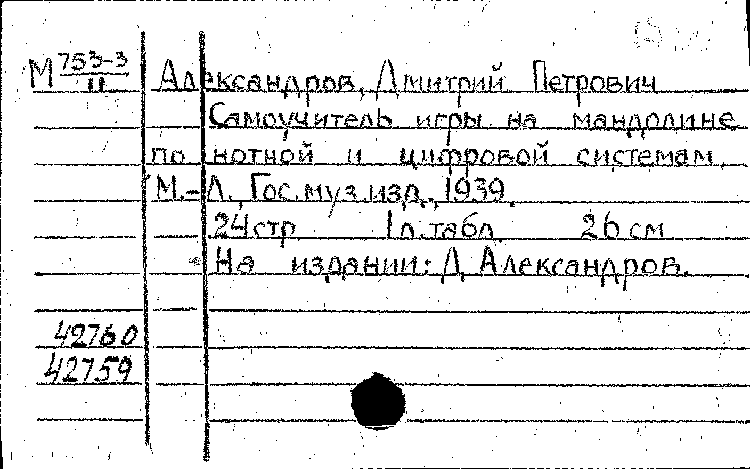 М 753-3
II
Александров, Дмитрий Петрович
Самоучитель игры на мандолине
по нотной и цифровой системам.
М.-Л., Гос. муз. изд., 1939.
24 стр 1 л. табл. 26 см
На издании: Д. Александров.
42760
42759